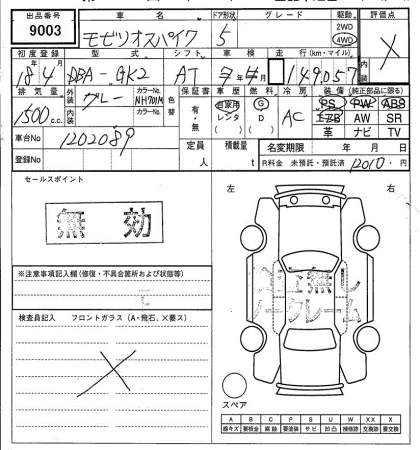 出品番号 9003
車名 モビリオスパイク
ドア形状 5
グレード
駆動 2WD 4WD
評価点 X
初度登録 型式 シフト 車検 走行(km・マイル)
18/4 DBA-GK2 AT 149,057
排気量 外装 カラーNo. 色替 保証書 車歴 燃料 冷房 装備(純正部品に限る)
1500 c.c. グレー NH701M 有・無 自家用 レンタ G D AC PS PW ABS
内装 カラーNo. AW SR
革 ナビ TV
車台No 1202089
定員 人 積載量 t 名変期限 年 月 日
登録No R料金 未預託・預託済 12010 円
セールスポイント
無効
左 右
※注意事項記入欄(修復・不具合箇所および状態等)
検査員記入 フロントガラス(A・飛石、×要ス)
X
ノークレーム
スペア
A B C P S U W X XX
線キズ 要板金 腐蝕 要塗装 サビ 凹凸 補修跡 交換跡 要交換